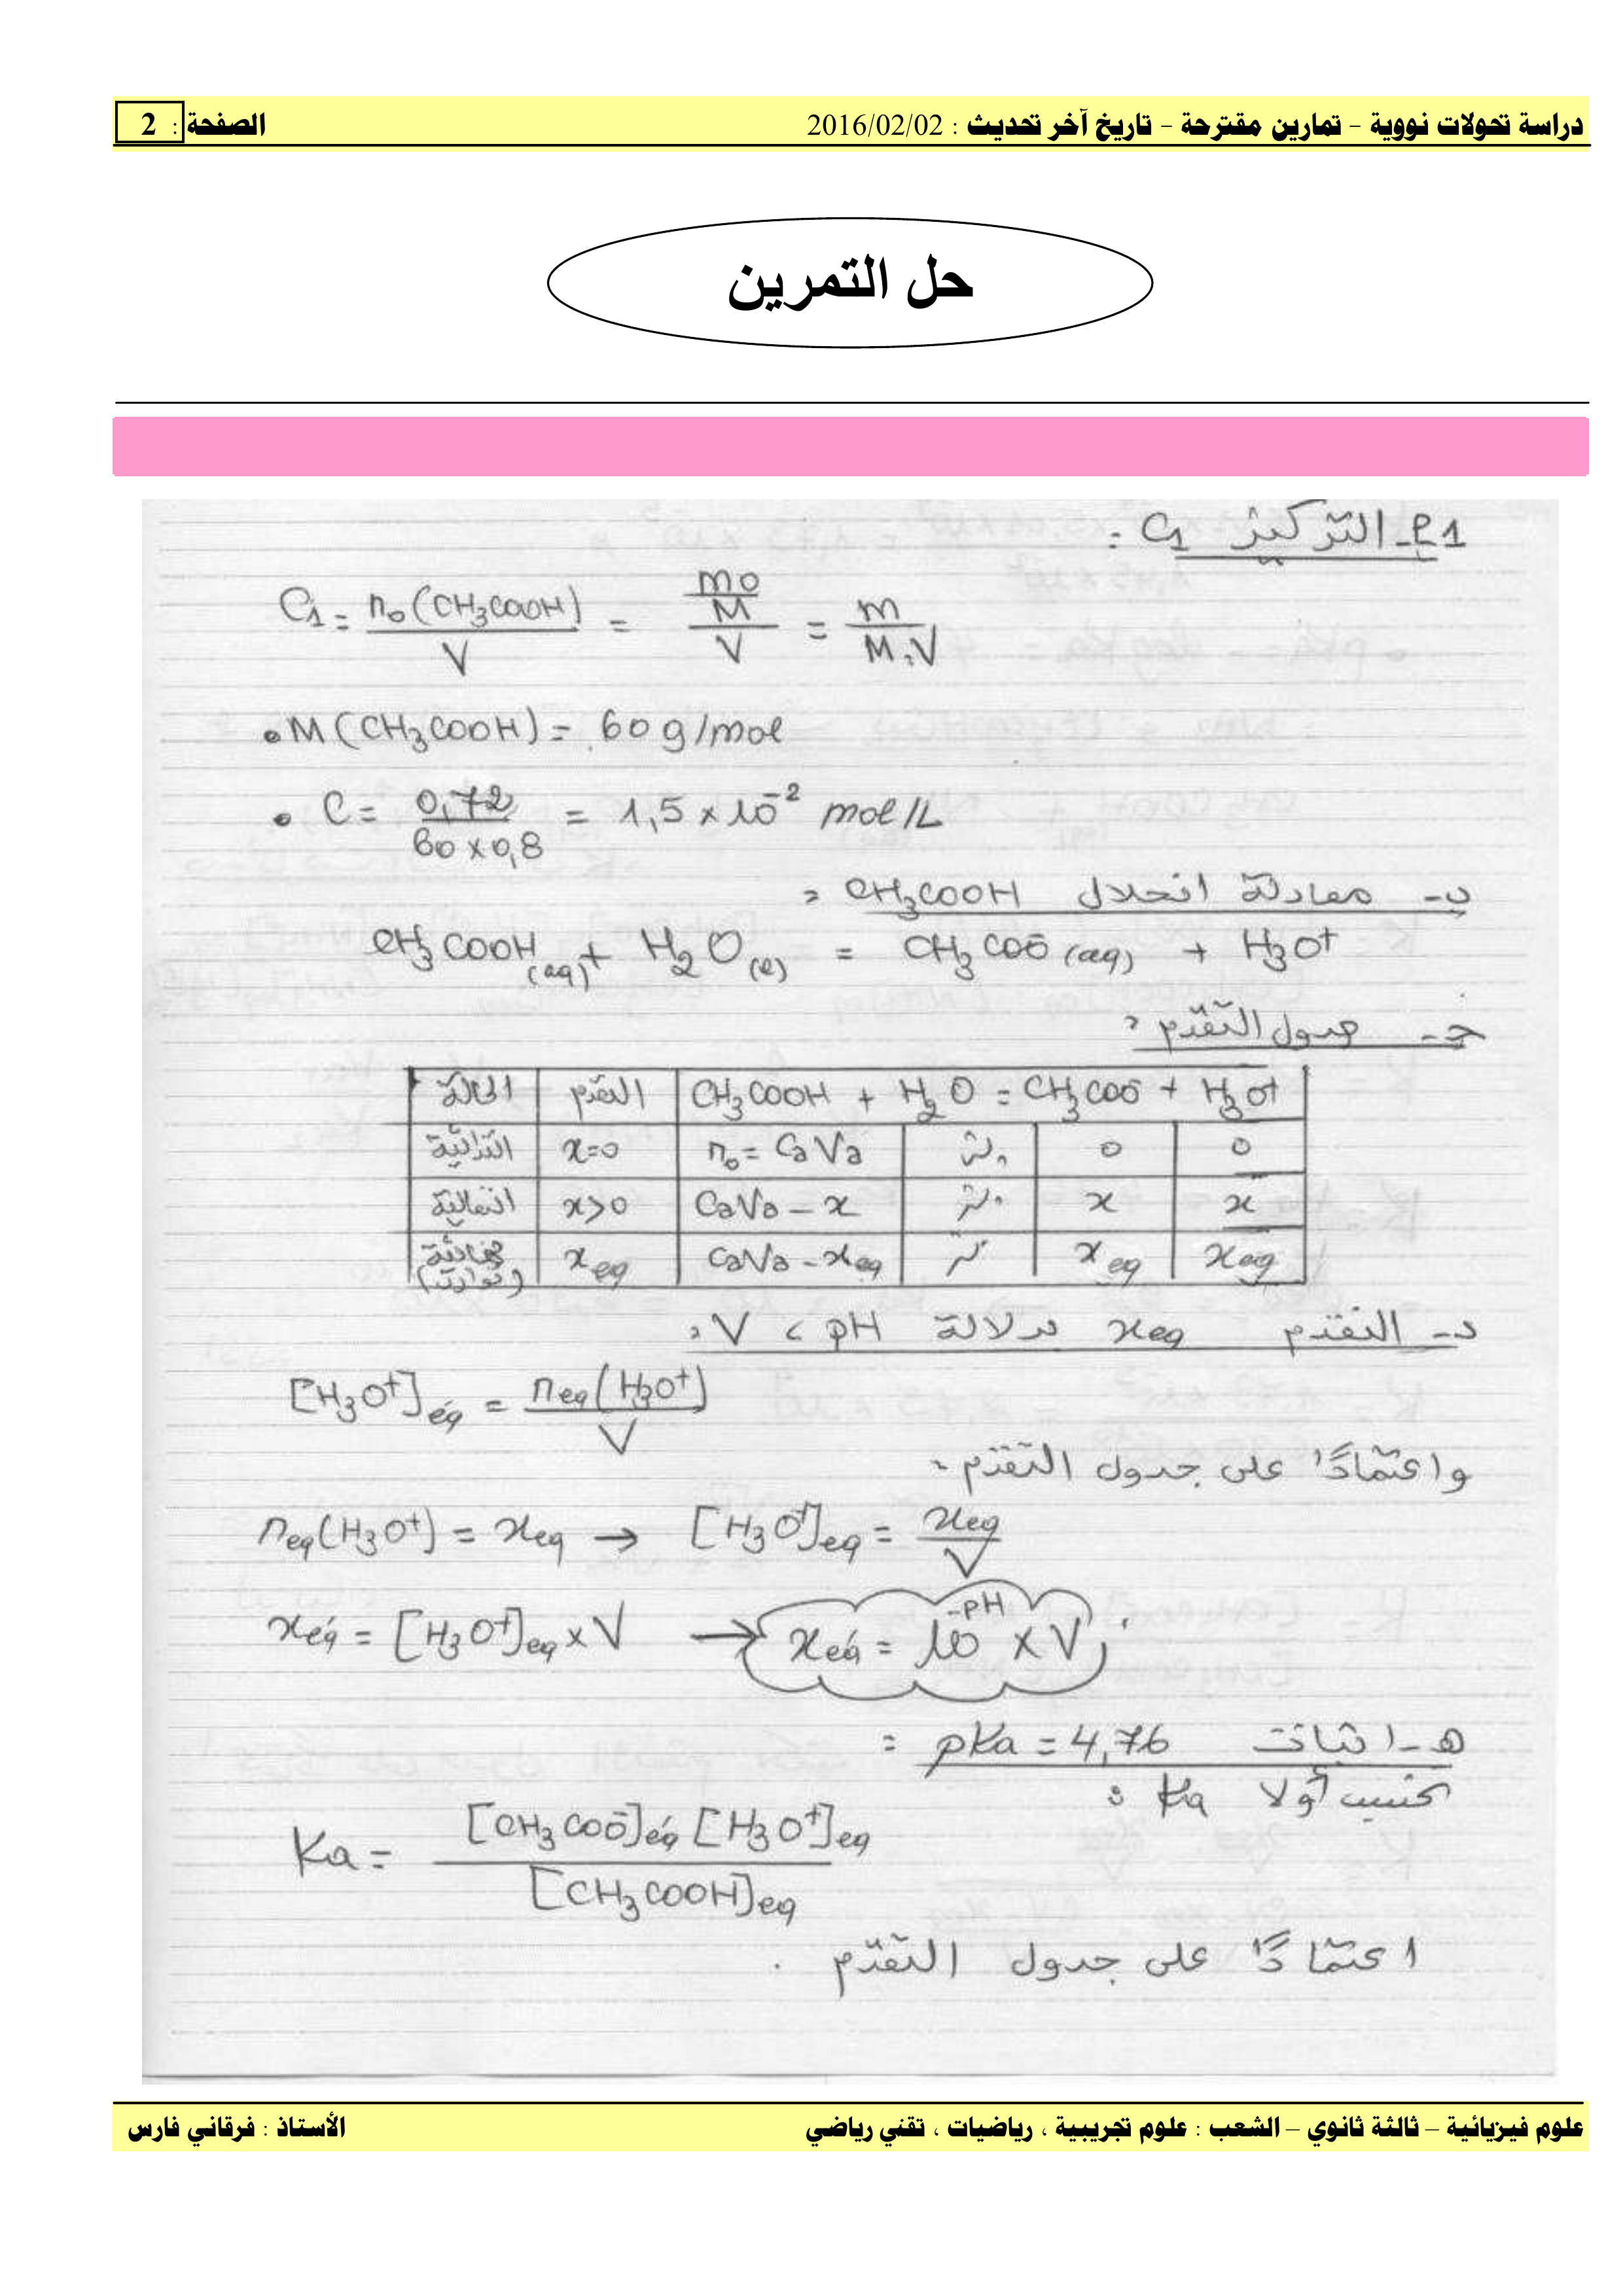 دراسة تحولات نووية – تمارين مقترحة – تاريخ آخر تحديث : 2016/02/02 الصفحة : 2
حل التمرين
1-أ- التركيز C₁ :
C₁ = n₀(CH₃COOH) / V = (m₀/M) / V = m / M.V
• M(CH₃COOH) = 60 g/mol
• C = 0,72 / 60 × 0,8 = 1,5 × 10⁻² mol/L
ب- معادلة انحلال CH₃COOH :
CH₃COOH(aq) + H₂O(l) = CH₃COO⁻(aq) + H₃O⁺
ج- جدول التقدم :
الحالة | التقدم | CH₃COOH + H₂O = CH₃COO⁻ + H₃O⁺
x=0 | n₀ = CaVa | 0 | 0
x>0 | CaVa – x | x | x
xeq | CaVa – xeq | xeq | xeq
د- التقدم xeq بدلالة pH ، V :
[H₃O⁺]éq = neq(H₃O⁺) / V
واعتمادًا على جدول التقدم :
neq(H₃O⁺) = xeq → [H₃O⁺]eq = xeq / V
xéq = [H₃O⁺]eq × V → xéq = 10^-pH × V
هـ- اثبات pKa = 4,76 :
نحسب أولا Ka :
Ka = [CH₃COO⁻]éq [H₃O⁺]eq / [CH₃COOH]eq
اعتمادًا على جدول التقدم .
علوم فيزيائية – ثالثة ثانوي – الشعب : علوم تجريبية ، رياضيات ، تقني رياضي الأستاذ : فرقاني فارس